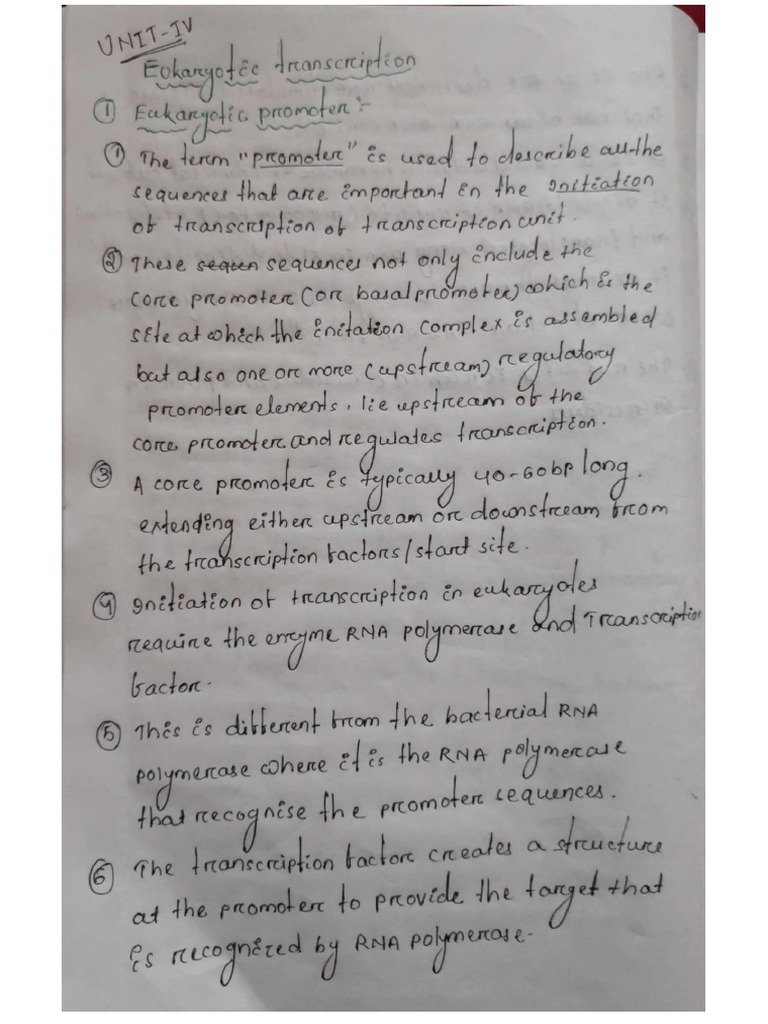 UNIT-IV
Eokaryotic transcription
① Eukaryotic promoter :-
① The term "promoter" is used to describe all the
sequences that are important in the initiation
of transcription of transcription unit.
② These sequen sequences not only include the
core promoter (or basal promoter) which is the
site at which the initation complex is assembled
but also one or more (upstream) regulatory
promoter elements, lie upstream of the
core promoter and regulates transcription.
③ A core promoter is typically 40-60bp long.
extending either upstream or downstream from
the transcription factors/start site.
④ Initiation of transcription in eukaryotes
require the enzyme RNA polymerase and Transcription
factor.
⑤ This is different from the bacterial RNA
polymerase where it is the RNA polymerase
that recognise the promoter sequences.
⑥ The transcription factor creates a structure
at the promoter to provide the target that
is recognized by RNA polymerase.